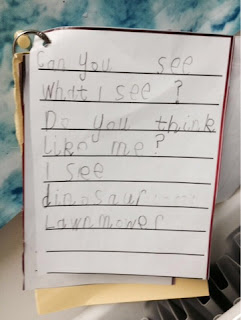 Can you see
What I see ?
Do you think
like me?
I see
dinosaur
Lawnmower